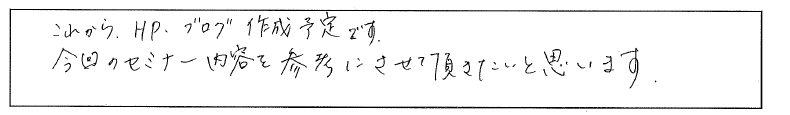 これから、HP、ブログ作成予定です。
今回のセミナー内容を参考にさせて頂きたいと思います。